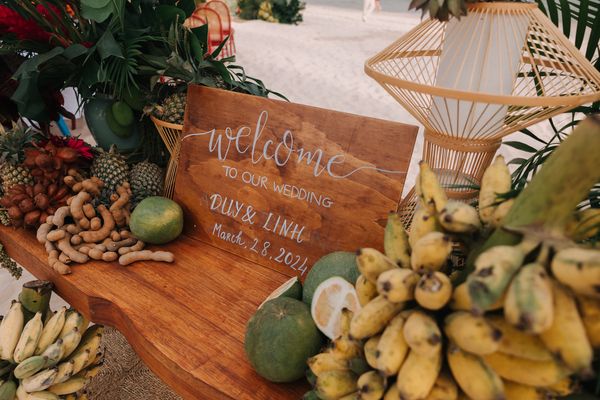 welcome
TO OUR WEDDING
DUY & LINH
March, 28, 2024